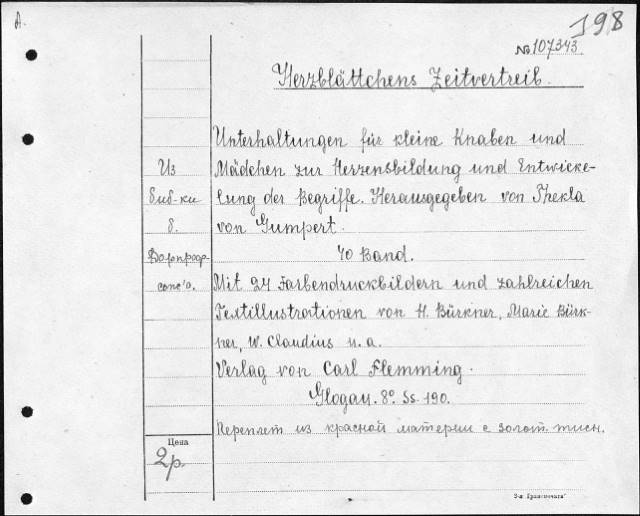 A.
198
№ 107343
Herzblättchens Zeitvertreib.
Unterhaltungen für kleine Knaben und
Mädchen zur Herzensbildung und Entwicke-
lung der Begriffe. Herausgegeben von Thekla
von Gumpert.
40 Band.
Mit 24 Farbendruckbildern und zahlreichen
Textillustrationen von H. Bürkner, Marie Bürk-
ner, W. Claudius u. a.
Verlag von Carl Flemming.
Glogau. 8º. Ss. 190.
Переплет из красной материи с золот. тисн.
Из
биб-ки
б.
Цена
2 р.